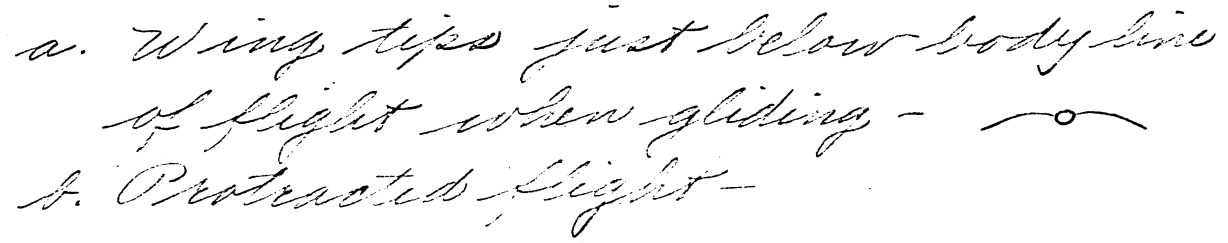 a. Wing tips just below body line
of flight when gliding -
b. Protracted flight -